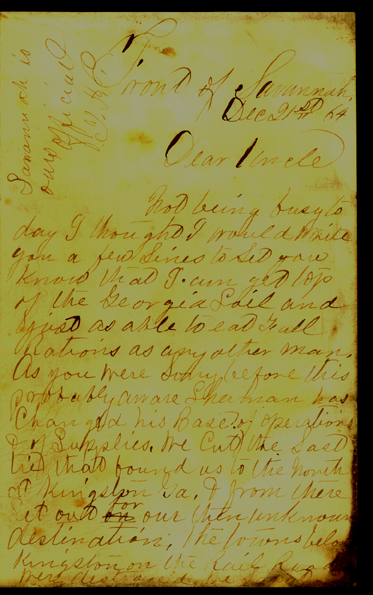 Savannah is
ours official
Front of Savannah
Dec 21st 64
Dear Uncle
Not being busy to
day I thought I would write
you a few lines to let you
know that I am yet top
of the Georgia Soil and
just as able to eat full
Rations as any other man.
As you were before this
probably aware Sherman has
Changed his Base of operations
& of Supplies. We Cut the Last
tie that bound us to the North
at Kingston Ga. & from there
set out for our then unknown
destination. The towns below
Kingston on the Rail Road
were destroyed. We